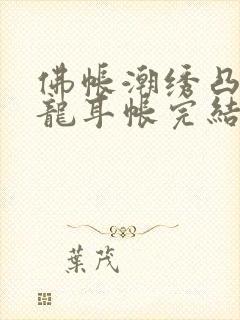 佛帳潮绣凸
龍耳帳完結
葉茂